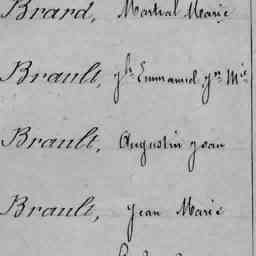 Brard, Martial Marie
Brault, Emmanuel
Brault, Augustin Jean
Brault, Jean Marie